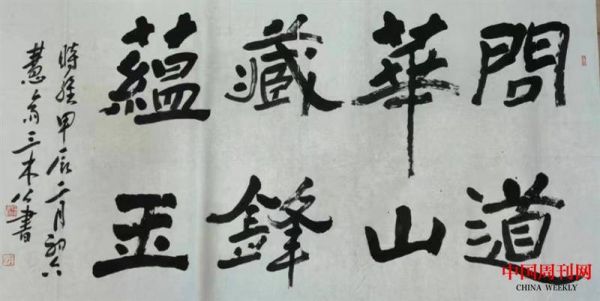 問道
華山
藏鋒
蘊玉
時在甲辰二月初六
慧翁三木公書
中国周刊网
CHINA WEEKLY